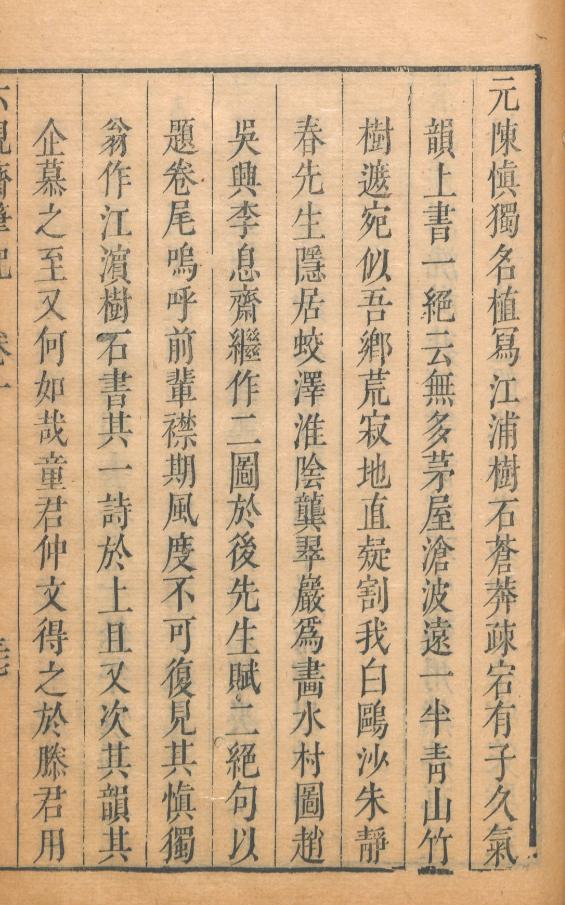 元陳慎獨名植冩江浦樹石蒼莽疎宕有子久氣
韻上書一絕云無多茅屋滄波遠一半靑山竹
樹遮宛似吾鄉荒寂地直疑割我白鷗沙朱靜
春先生隱居蛟澤淮陰龔翠巖爲畵水村圖趙
吳興李息齋繼作二圖於後先生賦二絕句以
題卷尾嗚呼前輩襟期風度不可復見其慎獨
翁作江濵樹石書其一詩於上且又次其韻其
企慕之至又何如哉童君仲文得之於滕君用
六硯齋筆記 卷一